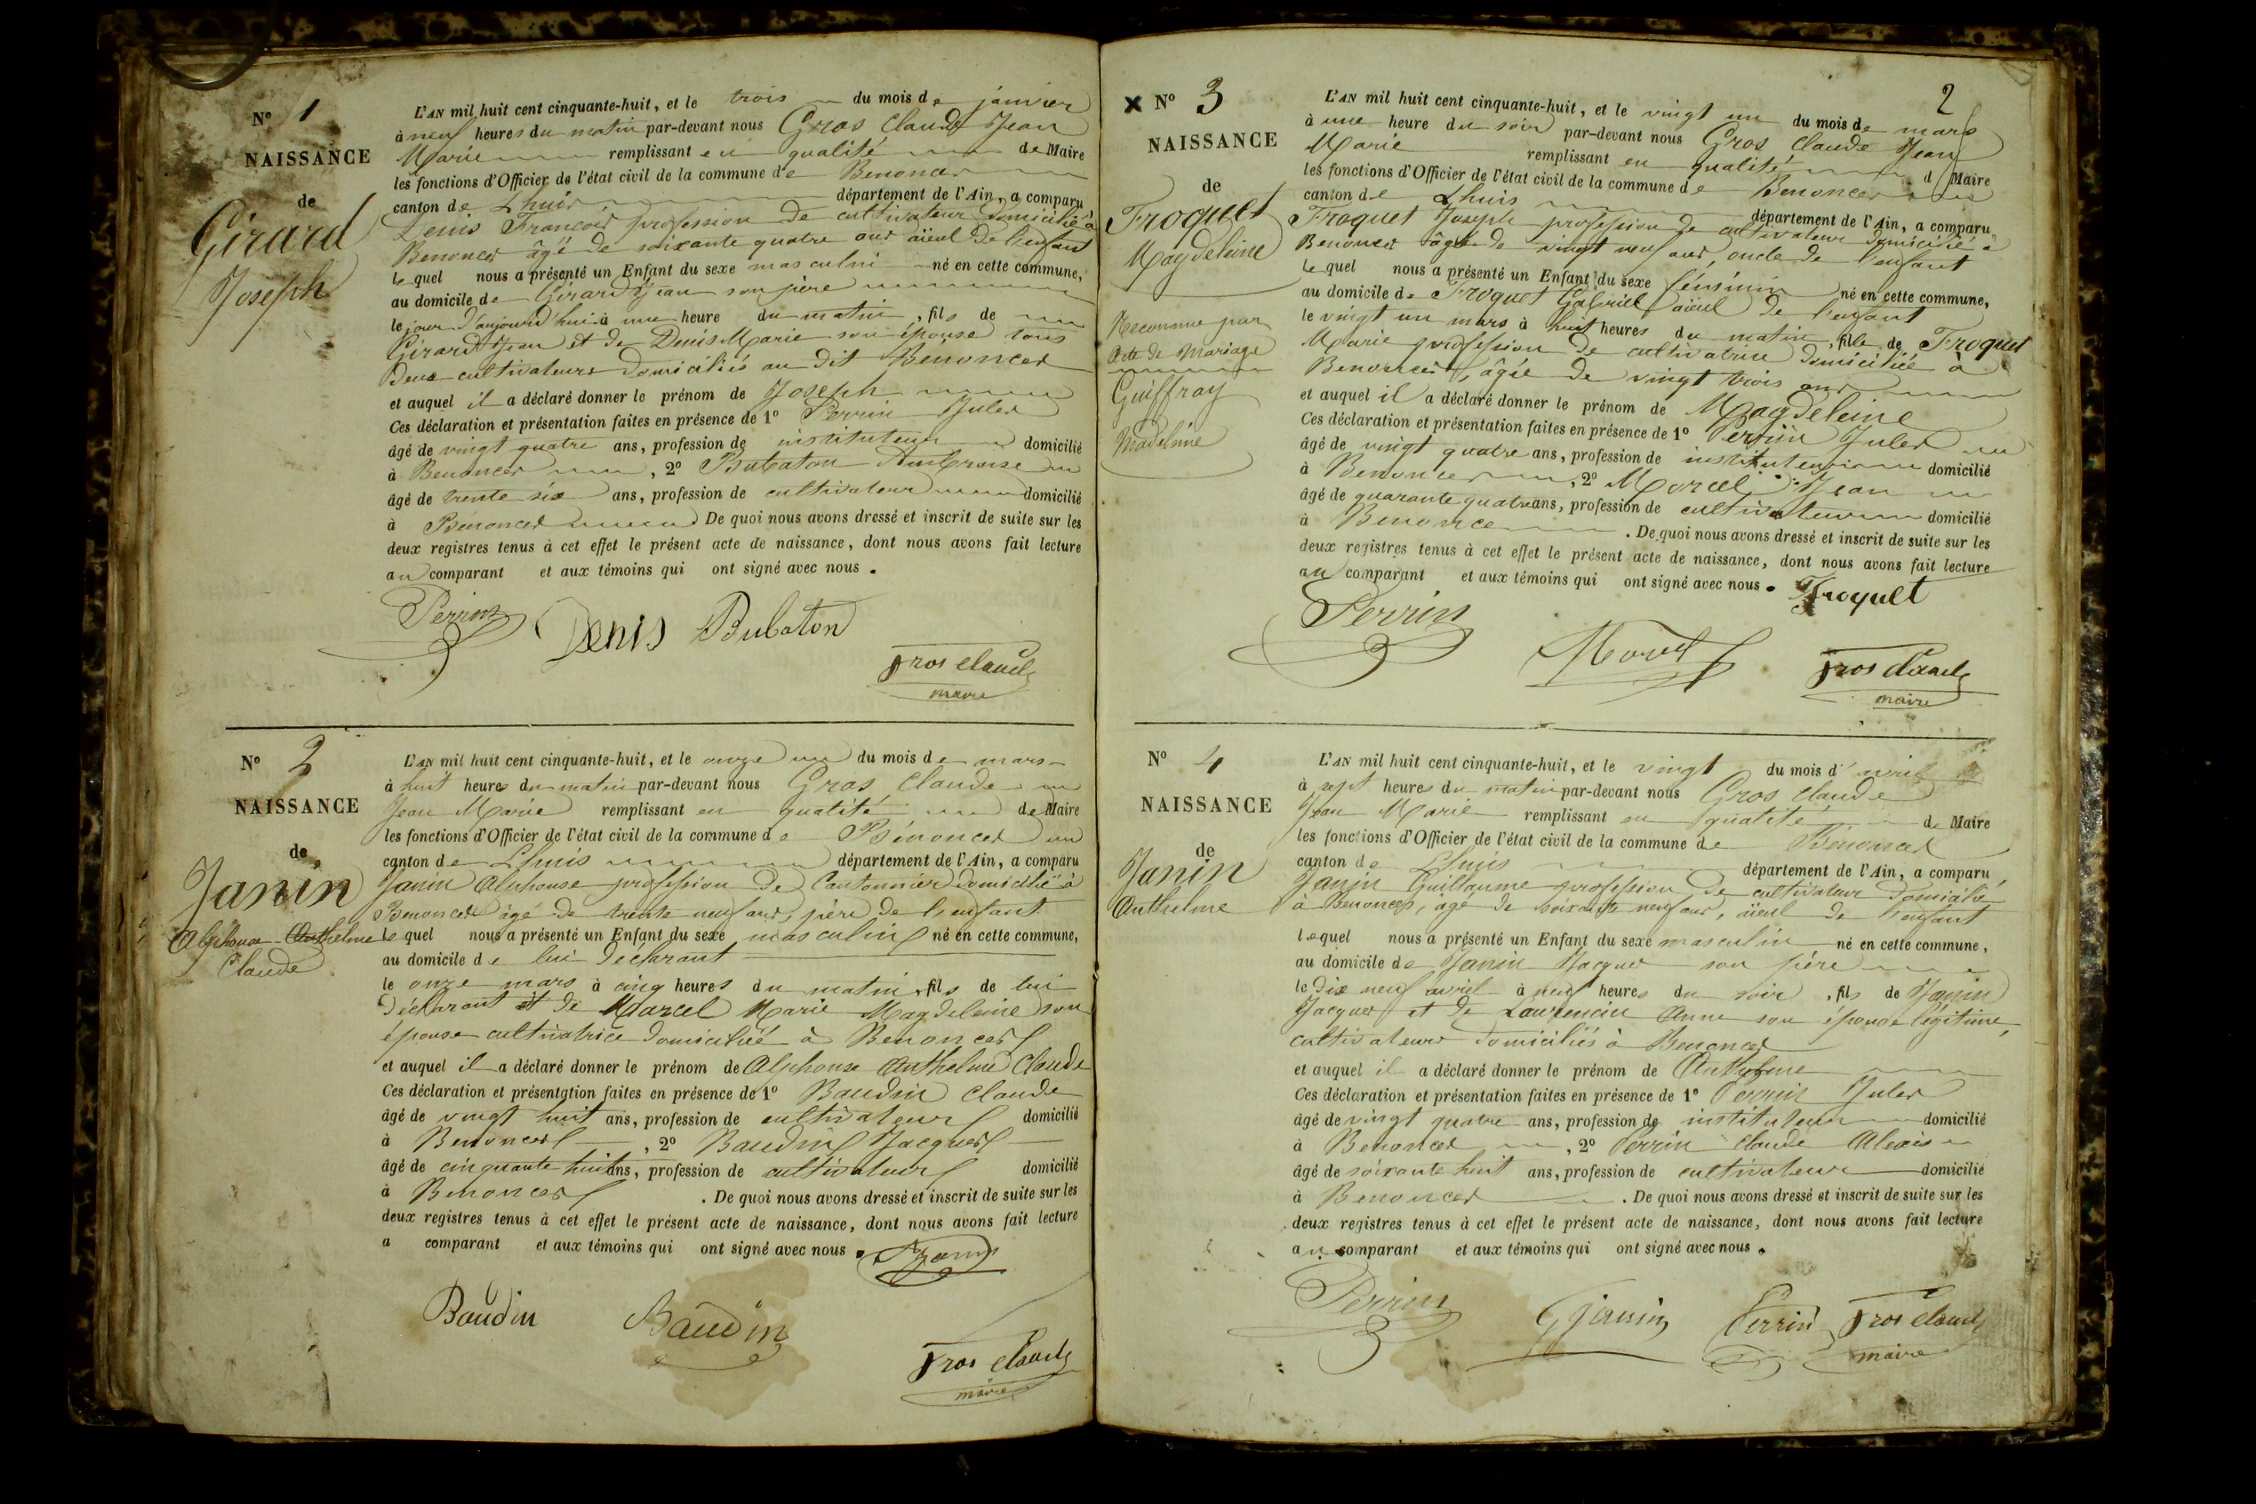 Nº 1
NAISSANCE
de
Girard
Joseph
L'AN mil huit cent cinquante-huit, et le trois du mois de janvier
à neuf heures du matin par-devant nous Gros Claude Jean
Marie remplissant en qualité de Maire
les fonctions d'Officier de l'état civil de la commune de Benonces
canton de Lhuis département de l'Ain, a comparu
Denis François profession de cultivateur domicilié à
Benonces âgé de soixante quatre ans aïeul de l'enfant
lequel nous a présenté un Enfant du sexe masculin né en cette commune,
au domicile de Girard Jean son père
le jour d'aujourd'hui à une heure du matin, fils de
Girard Jean et de Denis Marie son épouse tous
deux cultivateurs domiciliés au dit Benonces
et auquel il a déclaré donner le prénom de Joseph
Ces déclaration et présentation faites en présence de 1º Perrin Jules
âgé de vingt quatre ans, profession de instituteur domicilié
à Benonces, 2º Bubaton Ambroise
âgé de trente six ans, profession de cultivateur domicilié
à Bénonces De quoi nous avons dressé et inscrit de suite sur les
deux registres tenus à cet effet le présent acte de naissance, dont nous avons fait lecture
au comparant et aux témoins qui ont signé avec nous.
Perrin Denis Bubaton
Gros Claude
maire
Nº 2
NAISSANCE
de
Janin
Alphonse Anthelme
Claude
L'AN mil huit cent cinquante-huit, et le onze du mois de mars
à huit heures du matin par-devant nous Gros Claude
Jean Marie remplissant en qualité de Maire
les fonctions d'Officier de l'état civil de la commune de Bénonces
canton de Lhuis département de l'Ain, a comparu
Janin Alphonse profession de Cantonnier domicilié à
Benonces âgé de trente neuf ans, père de l'enfant
lequel nous a présenté un Enfant du sexe masculin né en cette commune,
au domicile de lui déclarant
le onze mars à cinq heures du matin, fils de lui
déclarant et de Marcel Marie Magdeleine son
épouse cultivatrice domiciliée à Benonces
et auquel il a déclaré donner le prénom de Alphonse Anthelme Claude
Ces déclaration et présentation faites en présence de 1º Baudin Claude
âgé de vingt huit ans, profession de cultivateur domicilié
à Benonces, 2º Baudin Jacques
âgé de cinquante huit ans, profession de cultivateur domicilié
à Benonces. De quoi nous avons dressé et inscrit de suite sur les
deux registres tenus à cet effet le présent acte de naissance, dont nous avons fait lecture
a comparant et aux témoins qui ont signé avec nous.
Baudin Baudin
Gros Claude
maire
2
Nº 3
NAISSANCE
de
Froquet
Magdeleine
Reconnue par
acte de Mariage
Guiffray
Madeleine
L'AN mil huit cent cinquante-huit, et le vingt un du mois de mars
à une heure du soir par-devant nous Gros Claude Jean
Marie remplissant en qualité d Maire
les fonctions d'Officier de l'état civil de la commune de Benonces
canton de Lhuis département de l'Ain, a comparu
Froquet Joseph profession de cultivateur domicilié à
Benonces âgé de vingt neuf ans, oncle de l'enfant
lequel nous a présenté un Enfant du sexe féminin né en cette commune,
au domicile de Froquet Gabriel aïeul de l'enfant
le vingt un mars à huit heures du matin, fille de Froquet
Marie profession de cultivatrice domiciliée à
Benonces, âgée de vingt trois ans
et auquel il a déclaré donner le prénom de Magdeleine
Ces déclaration et présentation faites en présence de 1º Perrin Jules
âgé de vingt quatre ans, profession de instituteur domicilié
à Benonces, 2º Morel Jean
âgé de quarante quatre ans, profession de cultivateur domicilié
à Benonces. De quoi nous avons dressé et inscrit de suite sur les
deux registres tenus à cet effet le présent acte de naissance, dont nous avons fait lecture
au comparant et aux témoins qui ont signé avec nous. Froquet
Perrin Morel Gros Claude
maire
Nº 4
NAISSANCE
de
Janin
Anthelme
L'AN mil huit cent cinquante-huit, et le vingt du mois d'avril
à sept heures du matin par-devant nous Gros Claude
Jean Marie remplissant en qualité de Maire
les fonctions d'Officier de l'état civil de la commune de Bénonces
canton de Lhuis département de l'Ain, a comparu
Janin Guillaume profession de cultivateur domicilié
à Benonces, âgé de soixante neuf ans, aïeul de l'enfant
lequel nous a présenté un Enfant du sexe masculin né en cette commune,
au domicile de Janin Jacques son père
le dix neuf avril à neuf heures du soir, fils de Janin
Jacques et de Laurencin Anne son épouse légitime,
cultivateurs domiciliés à Benonces
et auquel il a déclaré donner le prénom de Anthelme
Ces déclaration et présentation faites en présence de 1º Perrin Jules
âgé de vingt quatre ans, profession de instituteur domicilié
à Benonces, 2º Perrin Claude Alexis
âgé de soixante huit ans, profession de cultivateur domicilié
à Benonces. De quoi nous avons dressé et inscrit de suite sur les
deux registres tenus à cet effet le présent acte de naissance, dont nous avons fait lecture
au comparant et aux témoins qui ont signé avec nous.
Perrin G Janin Perrin Gros Claude
maire